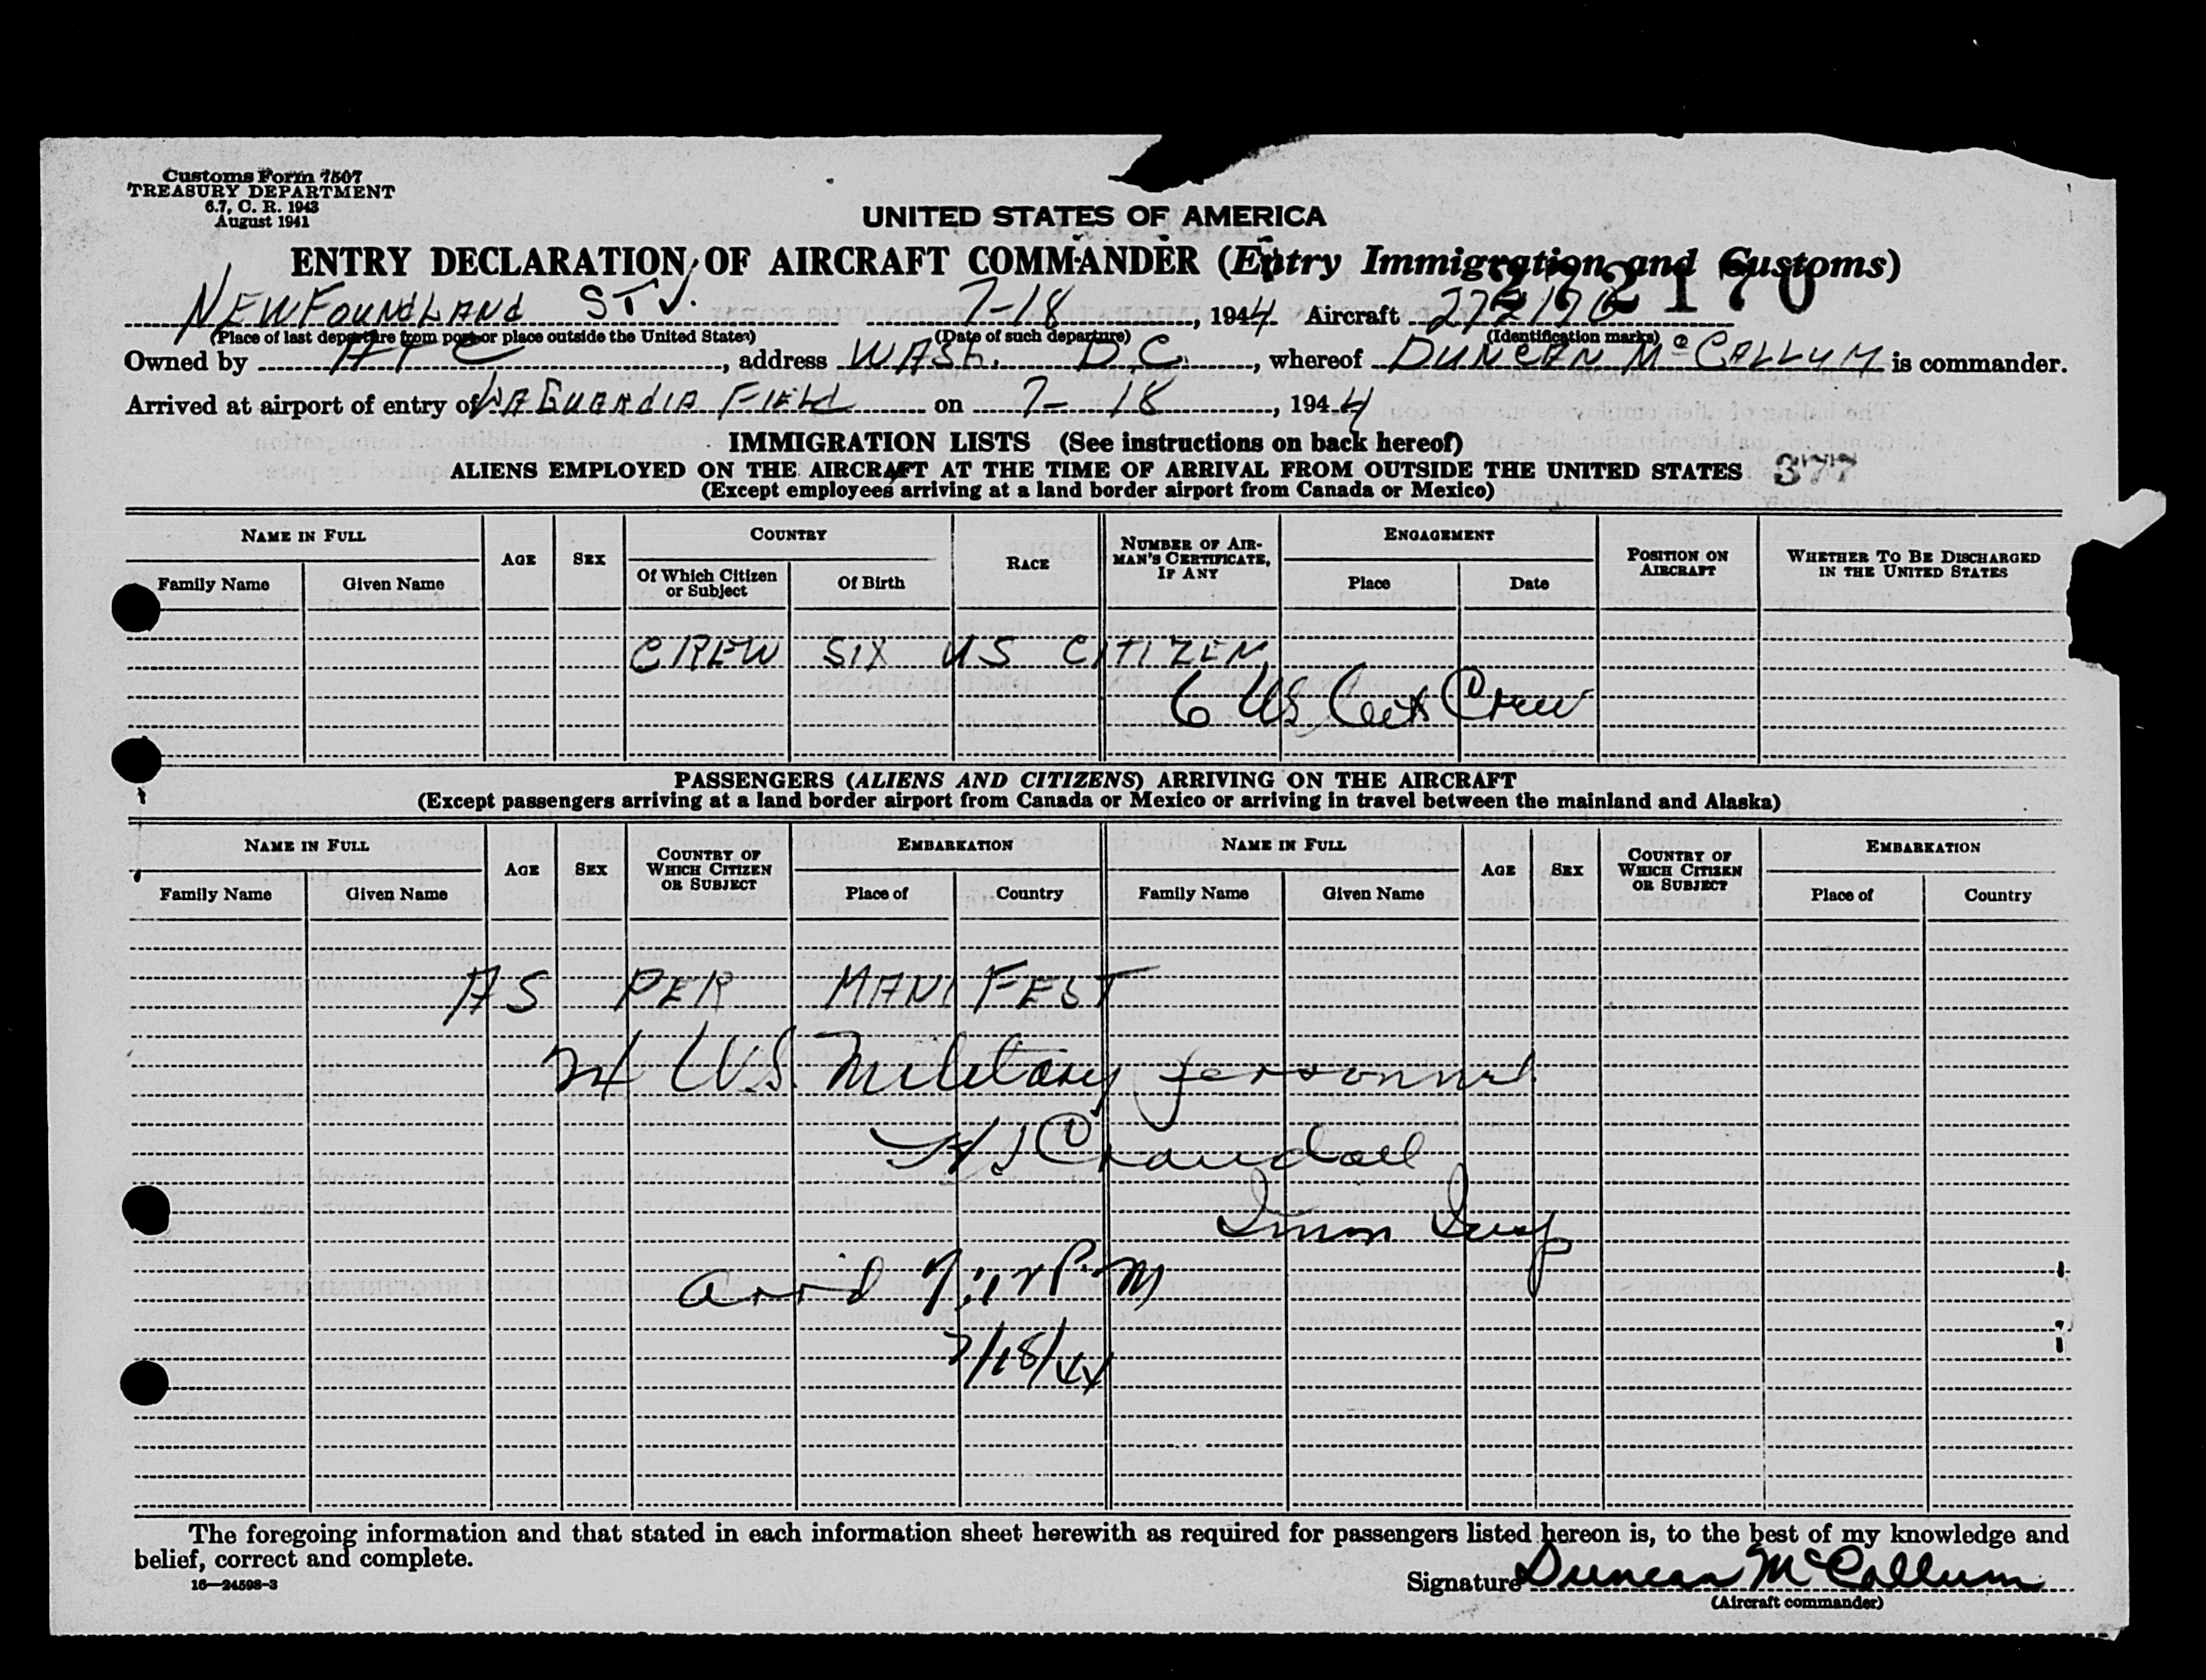 Customs Form 7507
TREASURY DEPARTMENT
6.7, C. R. 1943
August 1941
UNITED STATES OF AMERICA
ENTRY DECLARATION OF AIRCRAFT COMMANDER (Entry Immigration and Customs)
272170
NEWFOUNDLAND ST J. 7-18, 1944 Aircraft 272170
(Place of last departure from port or place outside the United States) (Date of such departure) (Identification marks)
Owned by ATC, address WASH. D.C., whereof DUNCAN McCALLUM is commander.
Arrived at airport of entry of LA GUARDIA FIELD on 7-18, 1944
IMMIGRATION LISTS (See instructions on back hereof)
ALIENS EMPLOYED ON THE AIRCRAFT AT THE TIME OF ARRIVAL FROM OUTSIDE THE UNITED STATES 377
(Except employees arriving at a land border airport from Canada or Mexico)
NAME IN FULL AGE SEX COUNTRY RACE NUMBER OF AIRMAN'S CERTIFICATE, IF ANY ENGAGEMENT POSITION ON AIRCRAFT WHETHER TO BE DISCHARGED IN THE UNITED STATES
Family Name Given Name Of Which Citizen or Subject Of Birth Place Date
CREW SIX US CITIZEN
6 US Crew
PASSENGERS (ALIENS AND CITIZENS) ARRIVING ON THE AIRCRAFT
(Except passengers arriving at a land border airport from Canada or Mexico or arriving in travel between the mainland and Alaska)
NAME IN FULL AGE SEX COUNTRY OF WHICH CITIZEN OR SUBJECT EMBARKATION NAME IN FULL AGE SEX COUNTRY OF WHICH CITIZEN OR SUBJECT EMBARKATION
Family Name Given Name Place of Country Family Name Given Name Place of Country
AS PER MANIFEST
U.S. Military personnel
H J Crandall
Immn Insp
arrid P.M
7/18/44
The foregoing information and that stated in each information sheet herewith as required for passengers listed hereon is, to the best of my knowledge and
belief, correct and complete.
16—24598-3
Signature Duncan McCallum
(Aircraft commander)